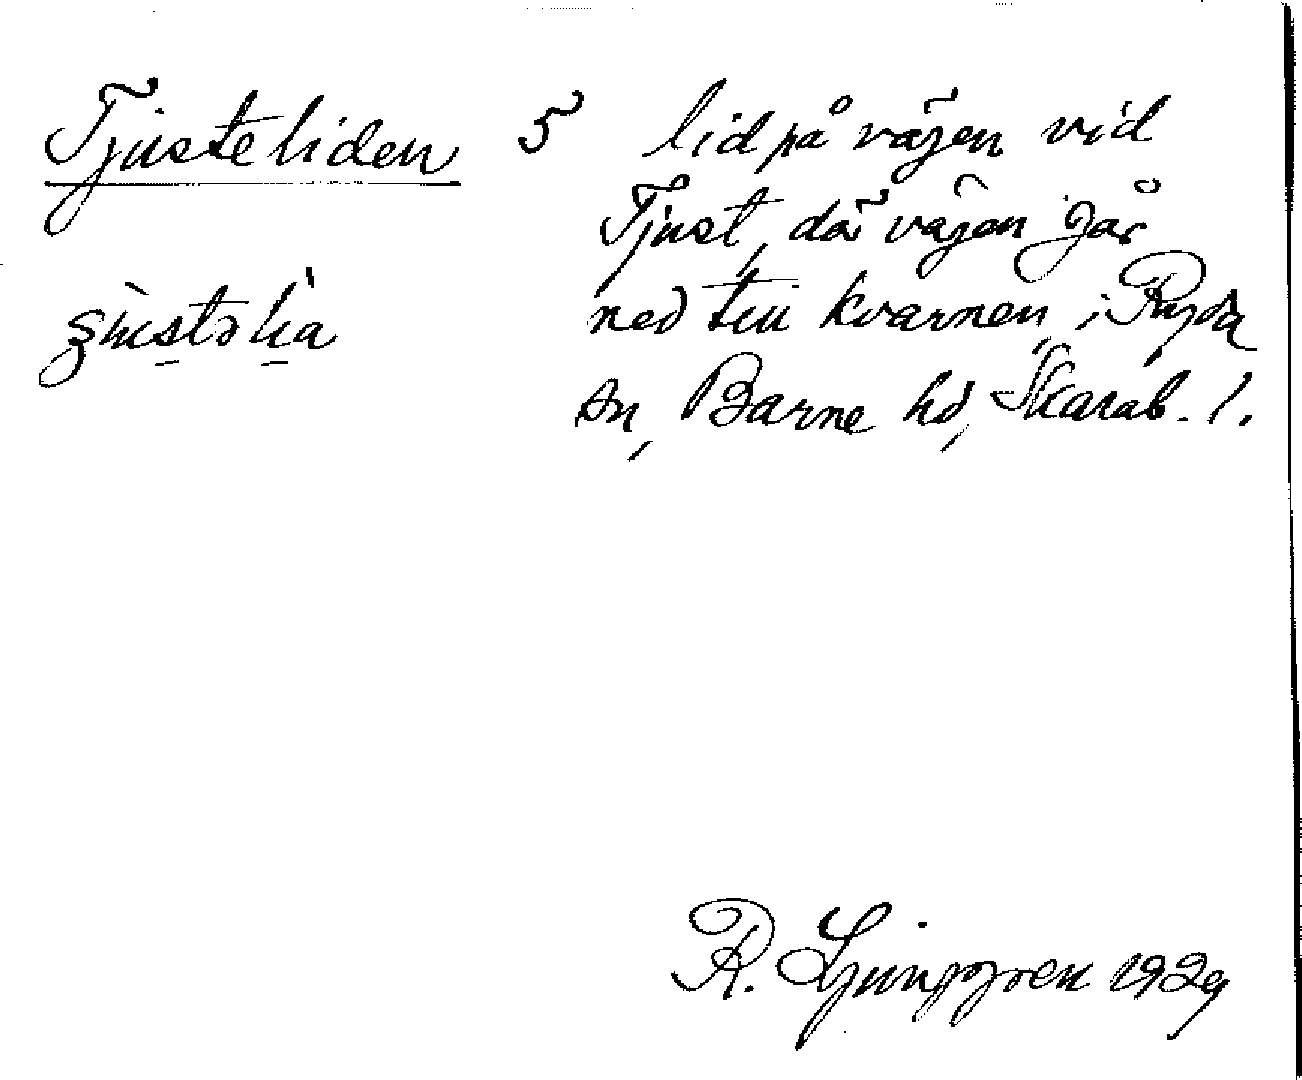 Tjusteliden 5 lid på vägen vid
Tjust, där vägen går
ned till kvarnen, i Ryda
sn, Barne hd, Skarab. l.
R. Ljunggren 1929